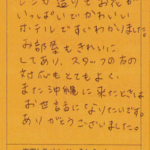 いっぱいでかわいい
ホテルですぐわかりました。
お部屋もきれいに
してあり、スタッフの方の
対応もとてもよく、
また沖縄に来たときは
お世話になりたいです。
ありがとうございました。